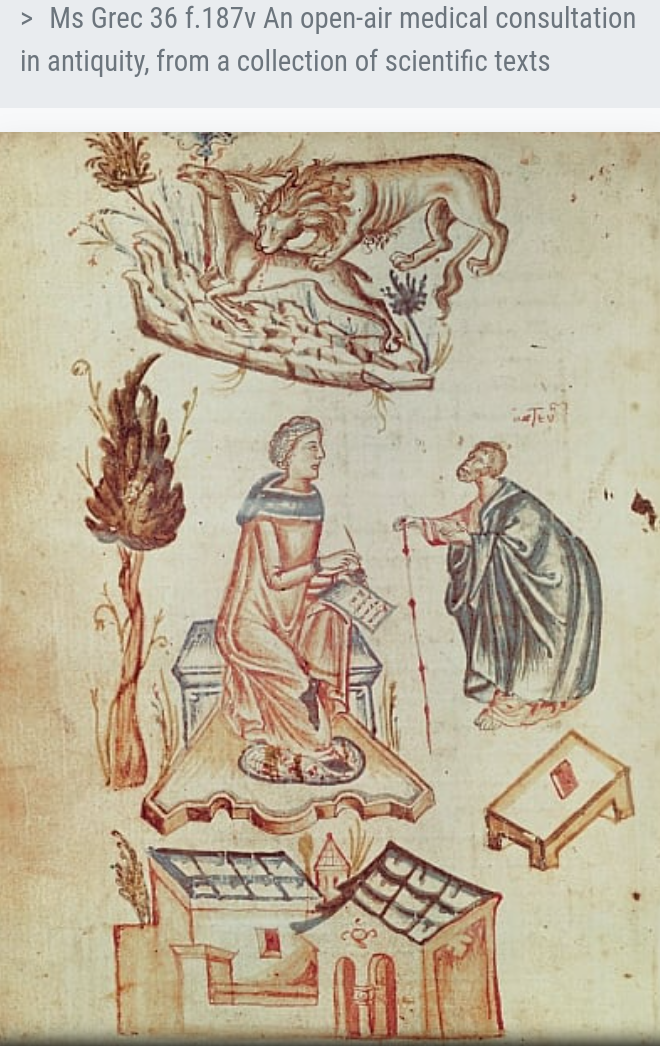 > Ms Grec 36 f.187v An open-air medical consultation
in antiquity, from a collection of scientific texts